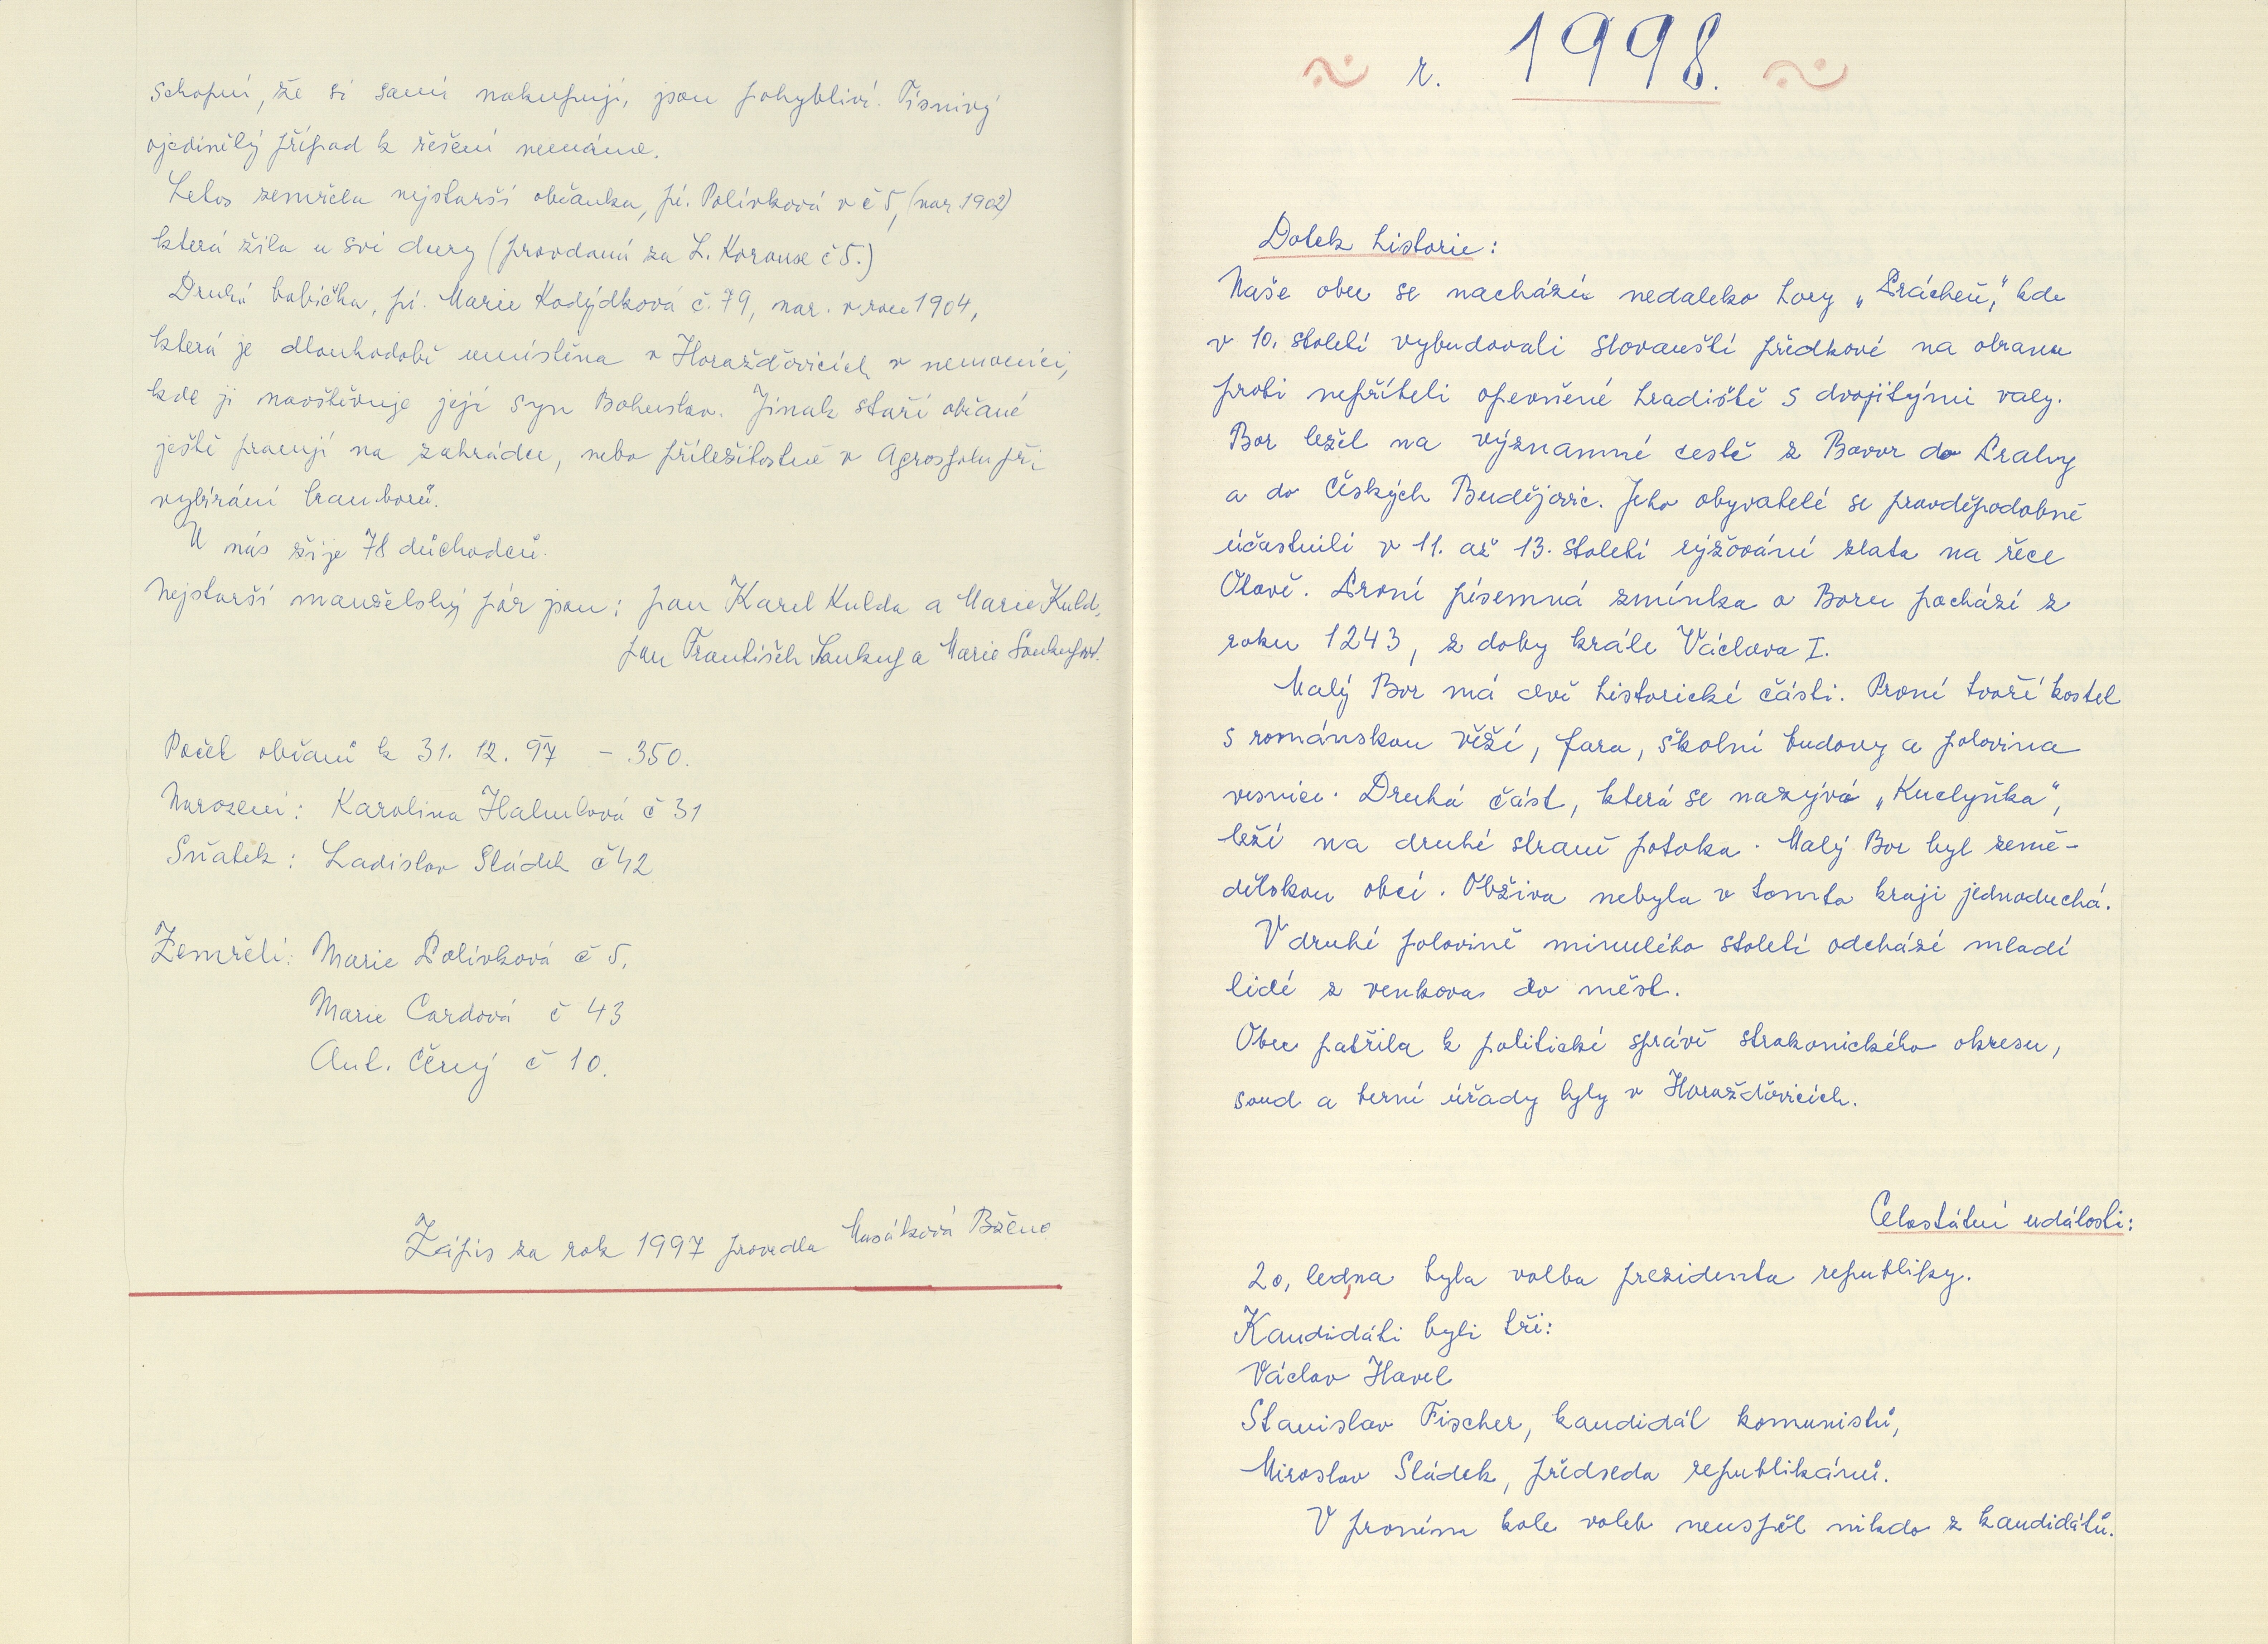 schopní, že si sami nakupují, jsou pohybliví. Tísnivý
ojedinělý případ k řešení nemáme.
Letos zemřela nejstarší občanka, pí. Polívková v č 5, (nar 1902)
která žila u své dcery (provdaná za L. Korouse č 5.)
Druhá babička, pí. Marie Kodýdková č. 79, nar. v roce 1904,
která je dlouhodobě umístěna v Horažďovicích v nemocnici,
kde ji navštěvuje její syn Bohuslav. Jinak staří občané
ještě pracují na zahrádce, nebo příležitostně v Agrospolu při
vybírání brambor.
U nás žije 78 důchodců.
Nejstarší manželský pár jsou: pan Karel Kulda a Marie Kuld.
pan František Soukup a Marie
Počet občanů k 31. 12. 97 - 350.
Narození: Karolina č 31
Sňatek: Ladislav Sládek č 42
Zemřeli: Marie Polívková č 5.
Marie Cardová č 43
Ant. Černý č 10.
Zápis za rok 1997 provedla Masáková Božena
r. 1998.
Dotek historie:
Naše obec se nachází nedaleko hory „Prácheň," kde
v 10. století vybudovali slovanští předkové na obranu
proti nepříteli opevněné hradiště s dvojitými valy.
Bor ležel na významné cestě z Bavor do Prahy
a do Českých Budějovic. Jeho obyvatelé se pravděpodobně
účastnili v 11. až 13. století rýžování zlata na řece
Otavě. První písemná zmínka o Boru pochází z
roku 1243, z doby krále Václava I.
Malý Bor má dvě historické části. První tvoří kostel
s románskou věží, fara, školní budovy a polovina
vesnice. Druhá část, která se nazývá „Kuclyňka",
leží na druhé straně potoka. Malý Bor byl země-
dělskou obcí. Obživa nebyla v tomto kraji jednoduchá.
V druhé polovině minulého století odchází mladí
lidé z venkova do měst.
Obec patřila k politické správě strakonického okresu,
soud a berní úřady byly v Horažďovicích.
Celostátní události:
20. ledna byla volba prezidenta republiky.
Kandidáti byli tři:
Václav Havel
Stanislav Fischer, kandidát komunistů,
Miroslav Sládek, předseda republikánů.
V prvním kole voleb neuspěl nikdo z kandidátů.